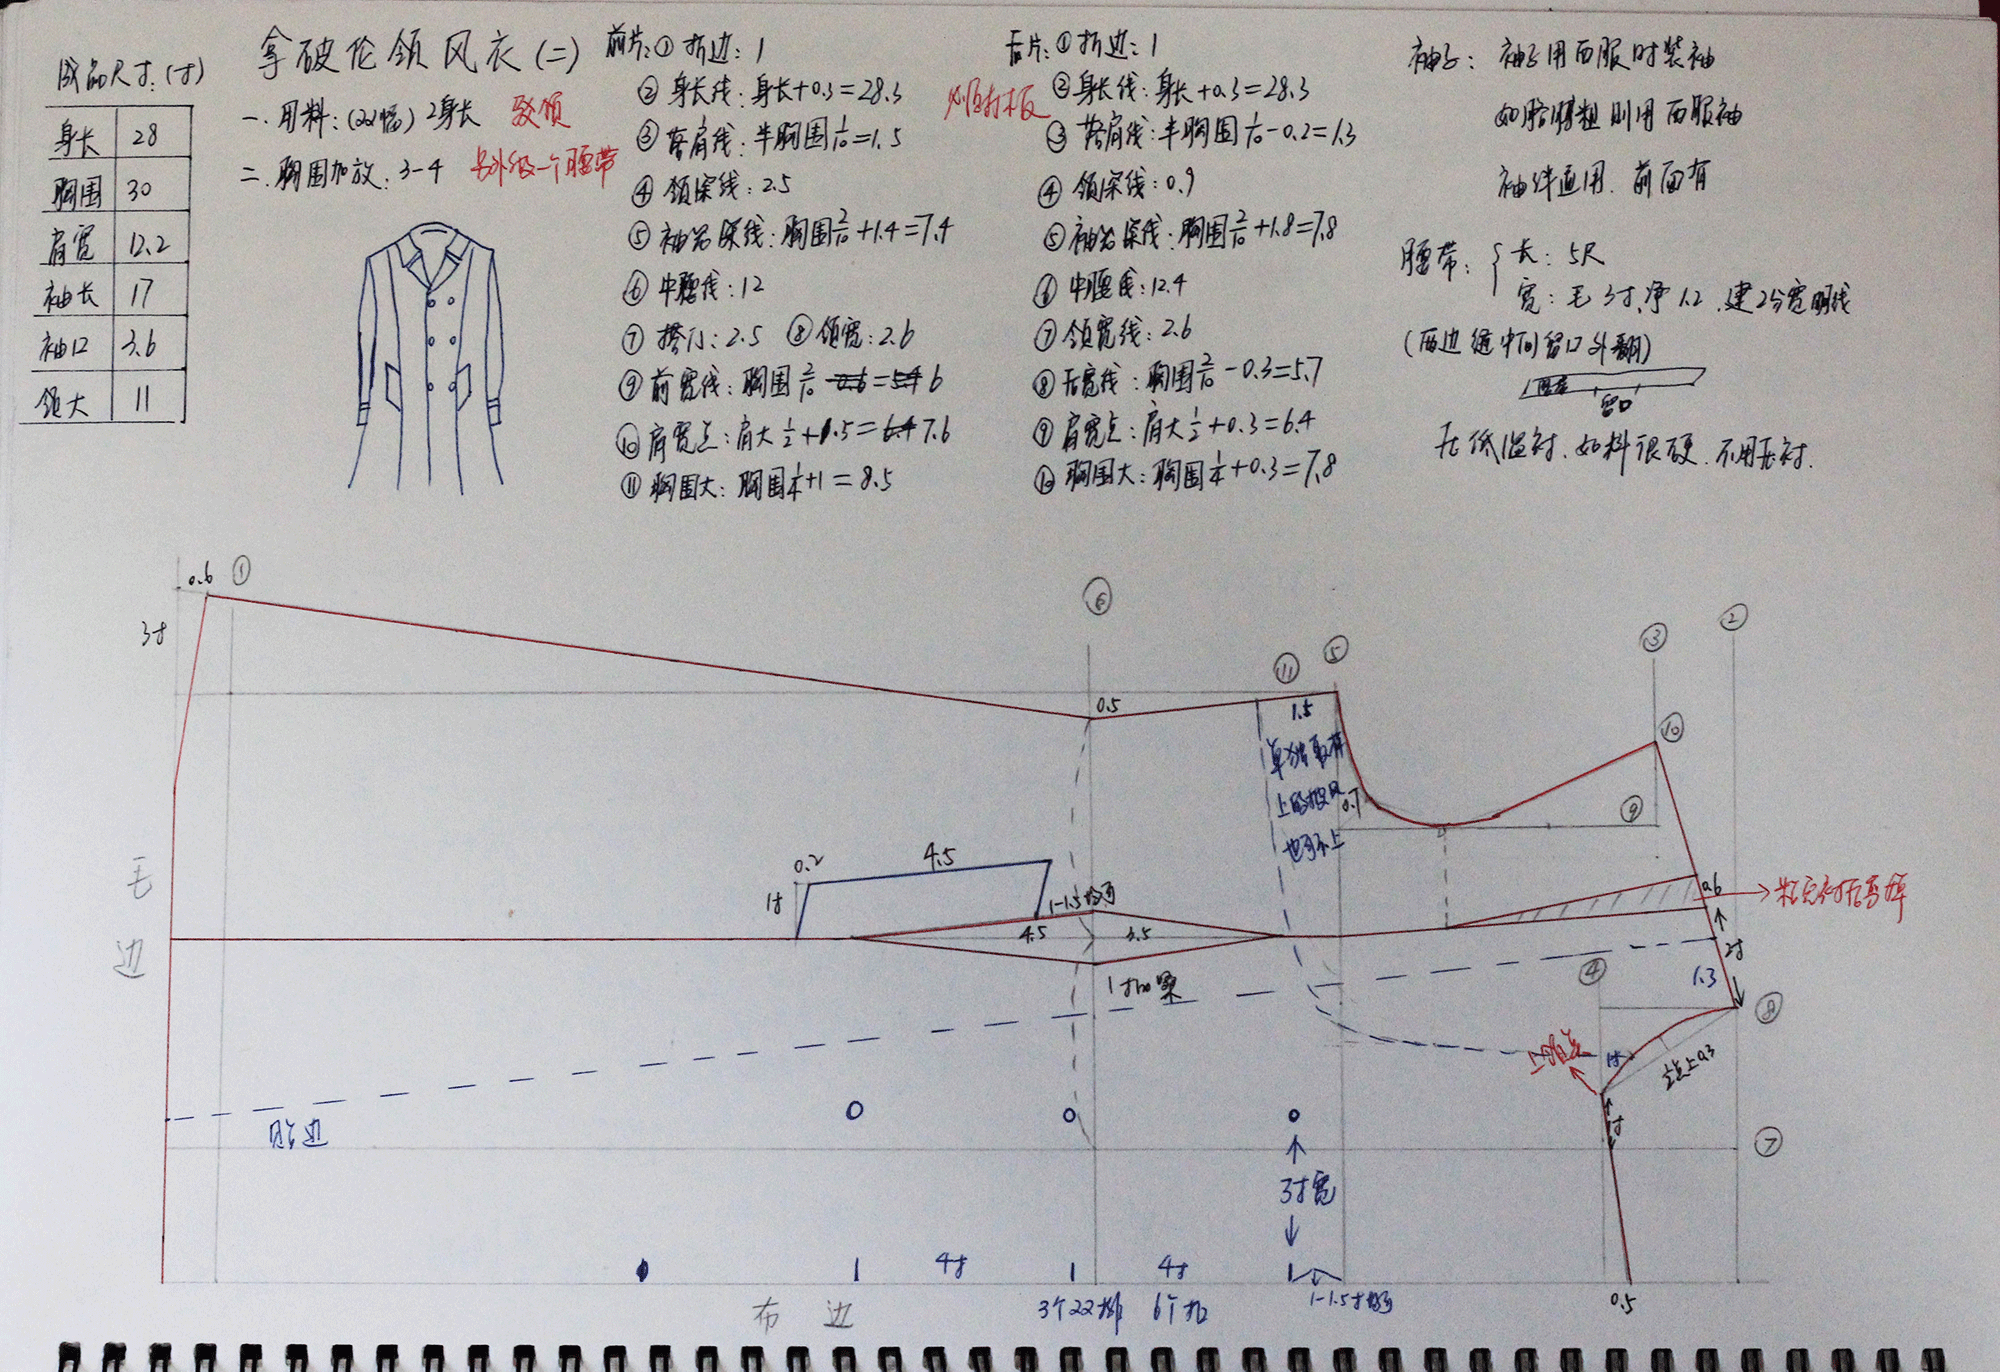 成品尺寸:(寸)
身长 28
胸围 30
肩宽 12.2
袖长 17
袖口 3.6
领大 11
拿破伦领风衣(二)
一.用料:(22幅)2身长 驳领
二.胸围加放:3-4 另外做一个腰带
前片:①折边:1
②身长线:身长+0.3=28.3
③落肩线:半胸围1/10=1.5
④领深线:2.5
⑤袖笼深线:胸围2/10+1.4=7.4
⑥中腰线:12
⑦搭门:2.5 ⑧领宽:2.6
⑨前宽线:胸围2/10-0.6=5.4 6
⑩肩宽点:肩大1/2+1.5=6.4 7.6
⑪胸围大:胸围1/4+1=8.5
后片:①折边:1
必须打板
②身长线:身长+0.3=28.3
③落肩线:半胸围1/10-0.2=1.3
④领深线:0.9
⑤袖笼深线:胸围2/10+1.8=7.8
⑥中腰线:12.4
⑦领宽线:2.6
⑧后宽线:胸围2/10-0.3=5.7
⑨肩宽点:肩大1/2+0.3=6.4
⑩胸围大:胸围1/4+0.3=7.8
袖子:袖子用西服时装袖
如胳膊粗则用西服袖
袖绊通用.前面有
腰带:长:5尺
宽:毛3寸,净1.2.建2分宽明线
(两边缝中间留口外翻)
留口
无低温衬.如料很硬.不用无衬.
0.6 ①
3寸
⑥
②
③
⑤
⑪
0.5
1.5
⑩
单独取存
也可不上
0.7
⑨
0.2
4.5
1寸
1-1.5
4.5
3.5
0.6
2寸
1.3
④
⑧
毛
边
1寸
1寸
0.3
1寸
⑦
3寸宽
4寸
4寸
布 边
3寸22排 6个扣
1-1.5寸
0.5